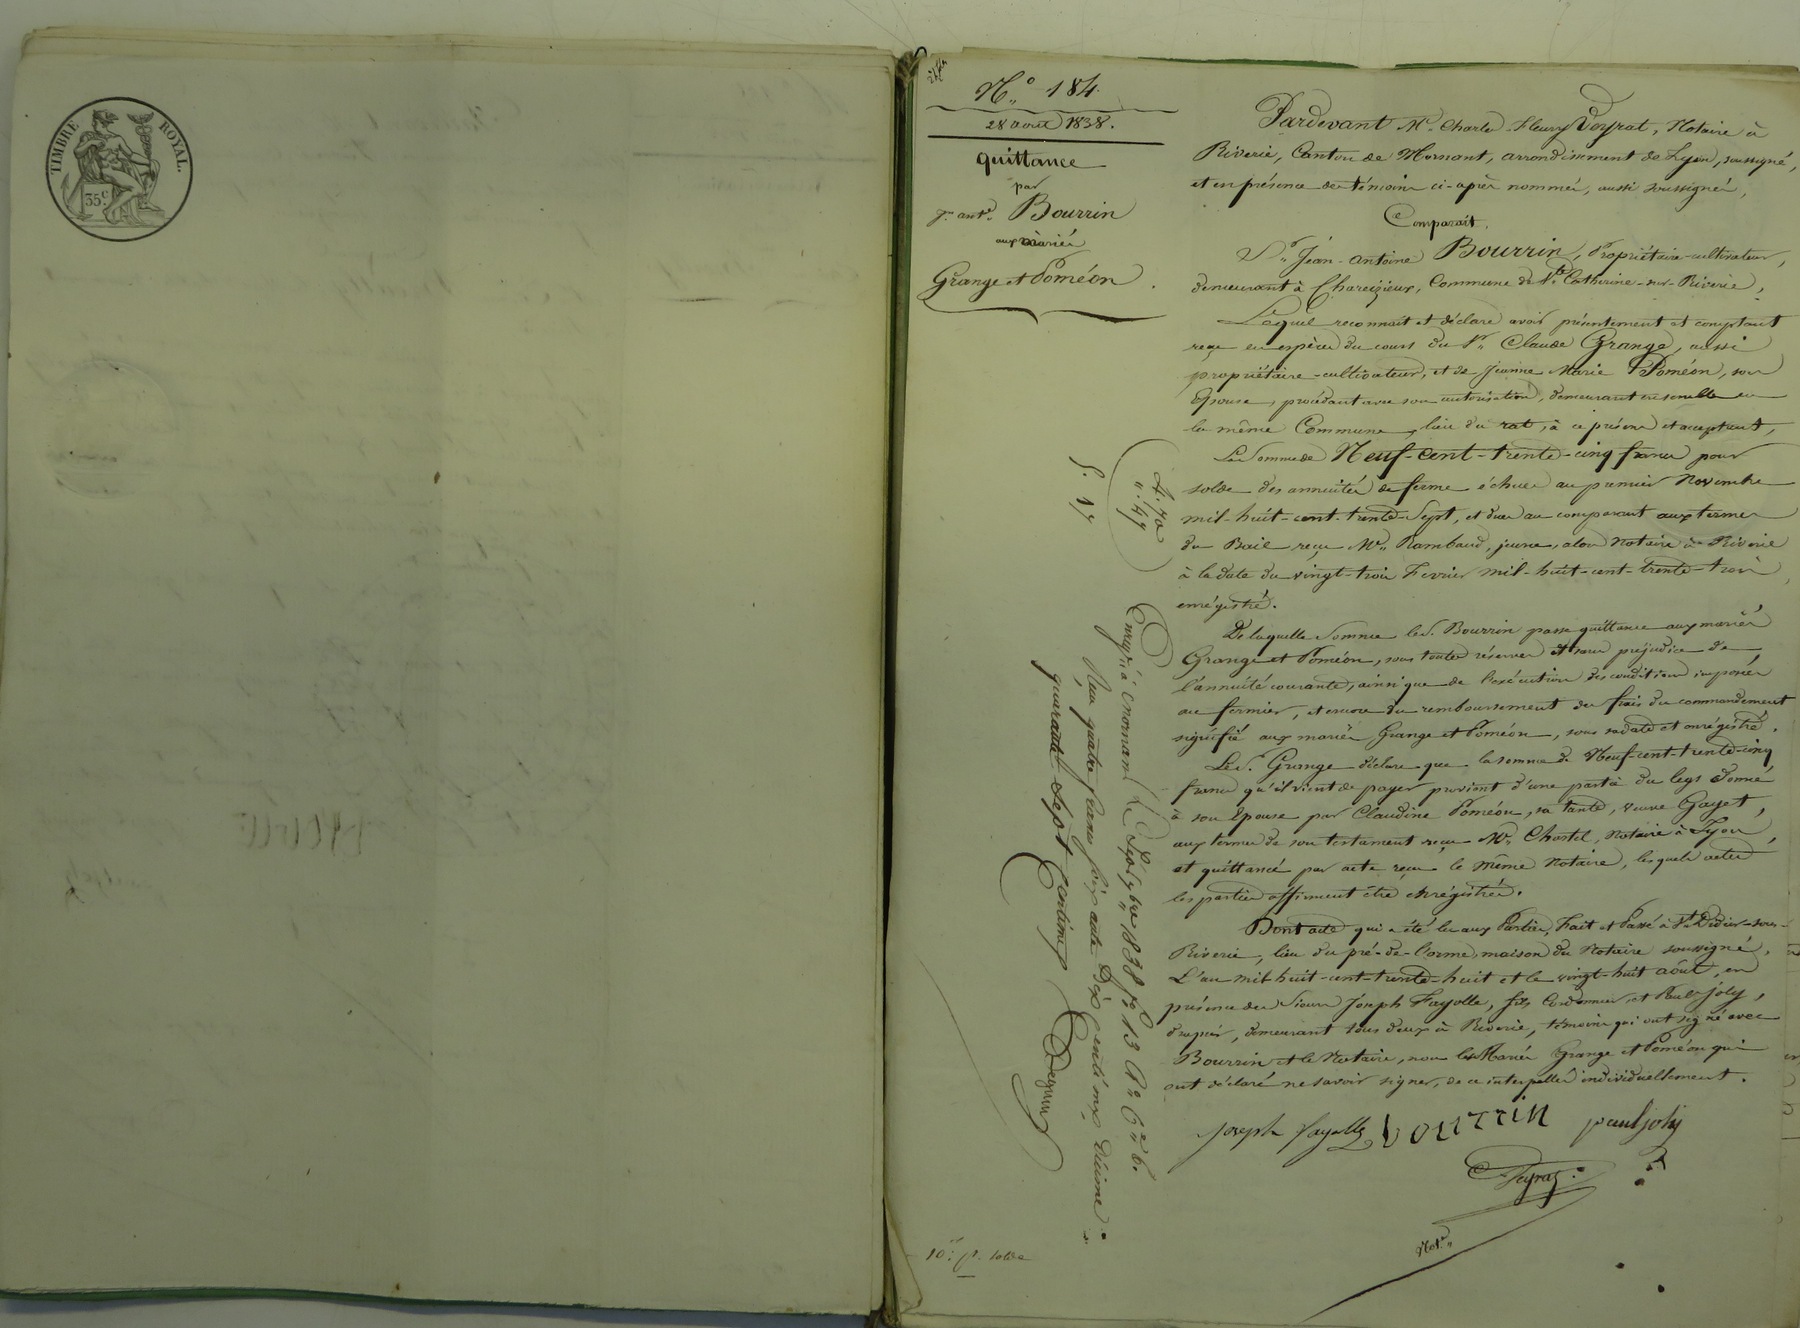 TIMBRE ROYAL.
35c
N° 184.
28 août 1838.
quittance
par
Jn. ant.e Bourrin
aux mariés
Grange et Poméon
Pardevant Me. Charles-Fleury Voyrat, Notaire à
Riverie, Canton de Mornant, arrondissement de Lyon, soussigné,
et en présence des témoins ci-après nommés, aussi soussignés,
Comparait.
Sr. Jean-Antoine Bourrin, Propriétaire-cultivateur,
demeurant à Chareizieux, Commune de Ste. Catherine-sur-Riverie,
Lequel reconnait et déclare avoir présentement et comptant
reçu en espèces du cours du Sr. Claude Grange, aussi
propriétaire-cultivateur, et de Jeanne Marie Poméon, son
Epouse, procédant avec son autorisation, demeurant ensemble en
la même Commune, lieu du rat, à ce présens et acceptant,
La Somme de Neuf-Cent-trente-cinq francs pour
solde des annuités de ferme échues au premier Novembre
mil-huit-cent-trente-Sept, et dues au comparant aux termes
du Bail reçu Me. Rambaud, jeune, alors Notaire à Riverie
à la date du vingt-trois Fevrier mil-huit-cent-trente-trois
enrégistré.
De laquelle Somme le S. Bourrin passe quittance aux mariés
Grange et Poméon, sous toutes réserves et sans préjudice de
l'annuité courante, ainsi que de l'exécution des conditions imposées
au fermier, et encore du remboursement des frais du commandement
signifié aux mariés Grange et Poméon, sous sa date et enrégistré.
Le S. Grange déclare que la somme de Neuf-cent-trente-cinq
francs qu'il vient de payer provient d'une partie du legs donné
à son Epouse par Claudine Poméon, sa tante, veuve Gayet,
aux termes de son testament reçu Me. Chastel, Notaire à Lyon,
et quittancé par acte reçu le même Notaire, lesquels actes
les parties affirment être enrégistrés.
Dont acte qui a été lu aux Parties, Fait et Passé à St. Didier-sous-
Riverie, lieu du pré-de-l'orme, maison du Notaire soussigné,
L'an mil-huit-cent-trente-huit et le vingt-huit août, en
présence des Sieurs Joseph Fayolle, fils, Cordonnier et Paul Joly,
drapier, demeurant tous deux à Riverie, témoins qui ont signé avec
Bourrin et le Notaire, non les Mariés Grange et Poméon qui
ont déclaré ne savoir signer, de ce interpellés individuellement.
Joseph fayolle bourrin paul joly
Not.re
4. 70
". 47
5. 17
Enreg.é à Mornant Le Sept 7bre 1838 f° 13 R° C 6.
Reçu quatre francs soixante Dix centimes Décime
quarante Sept Centimes
10. p. solde